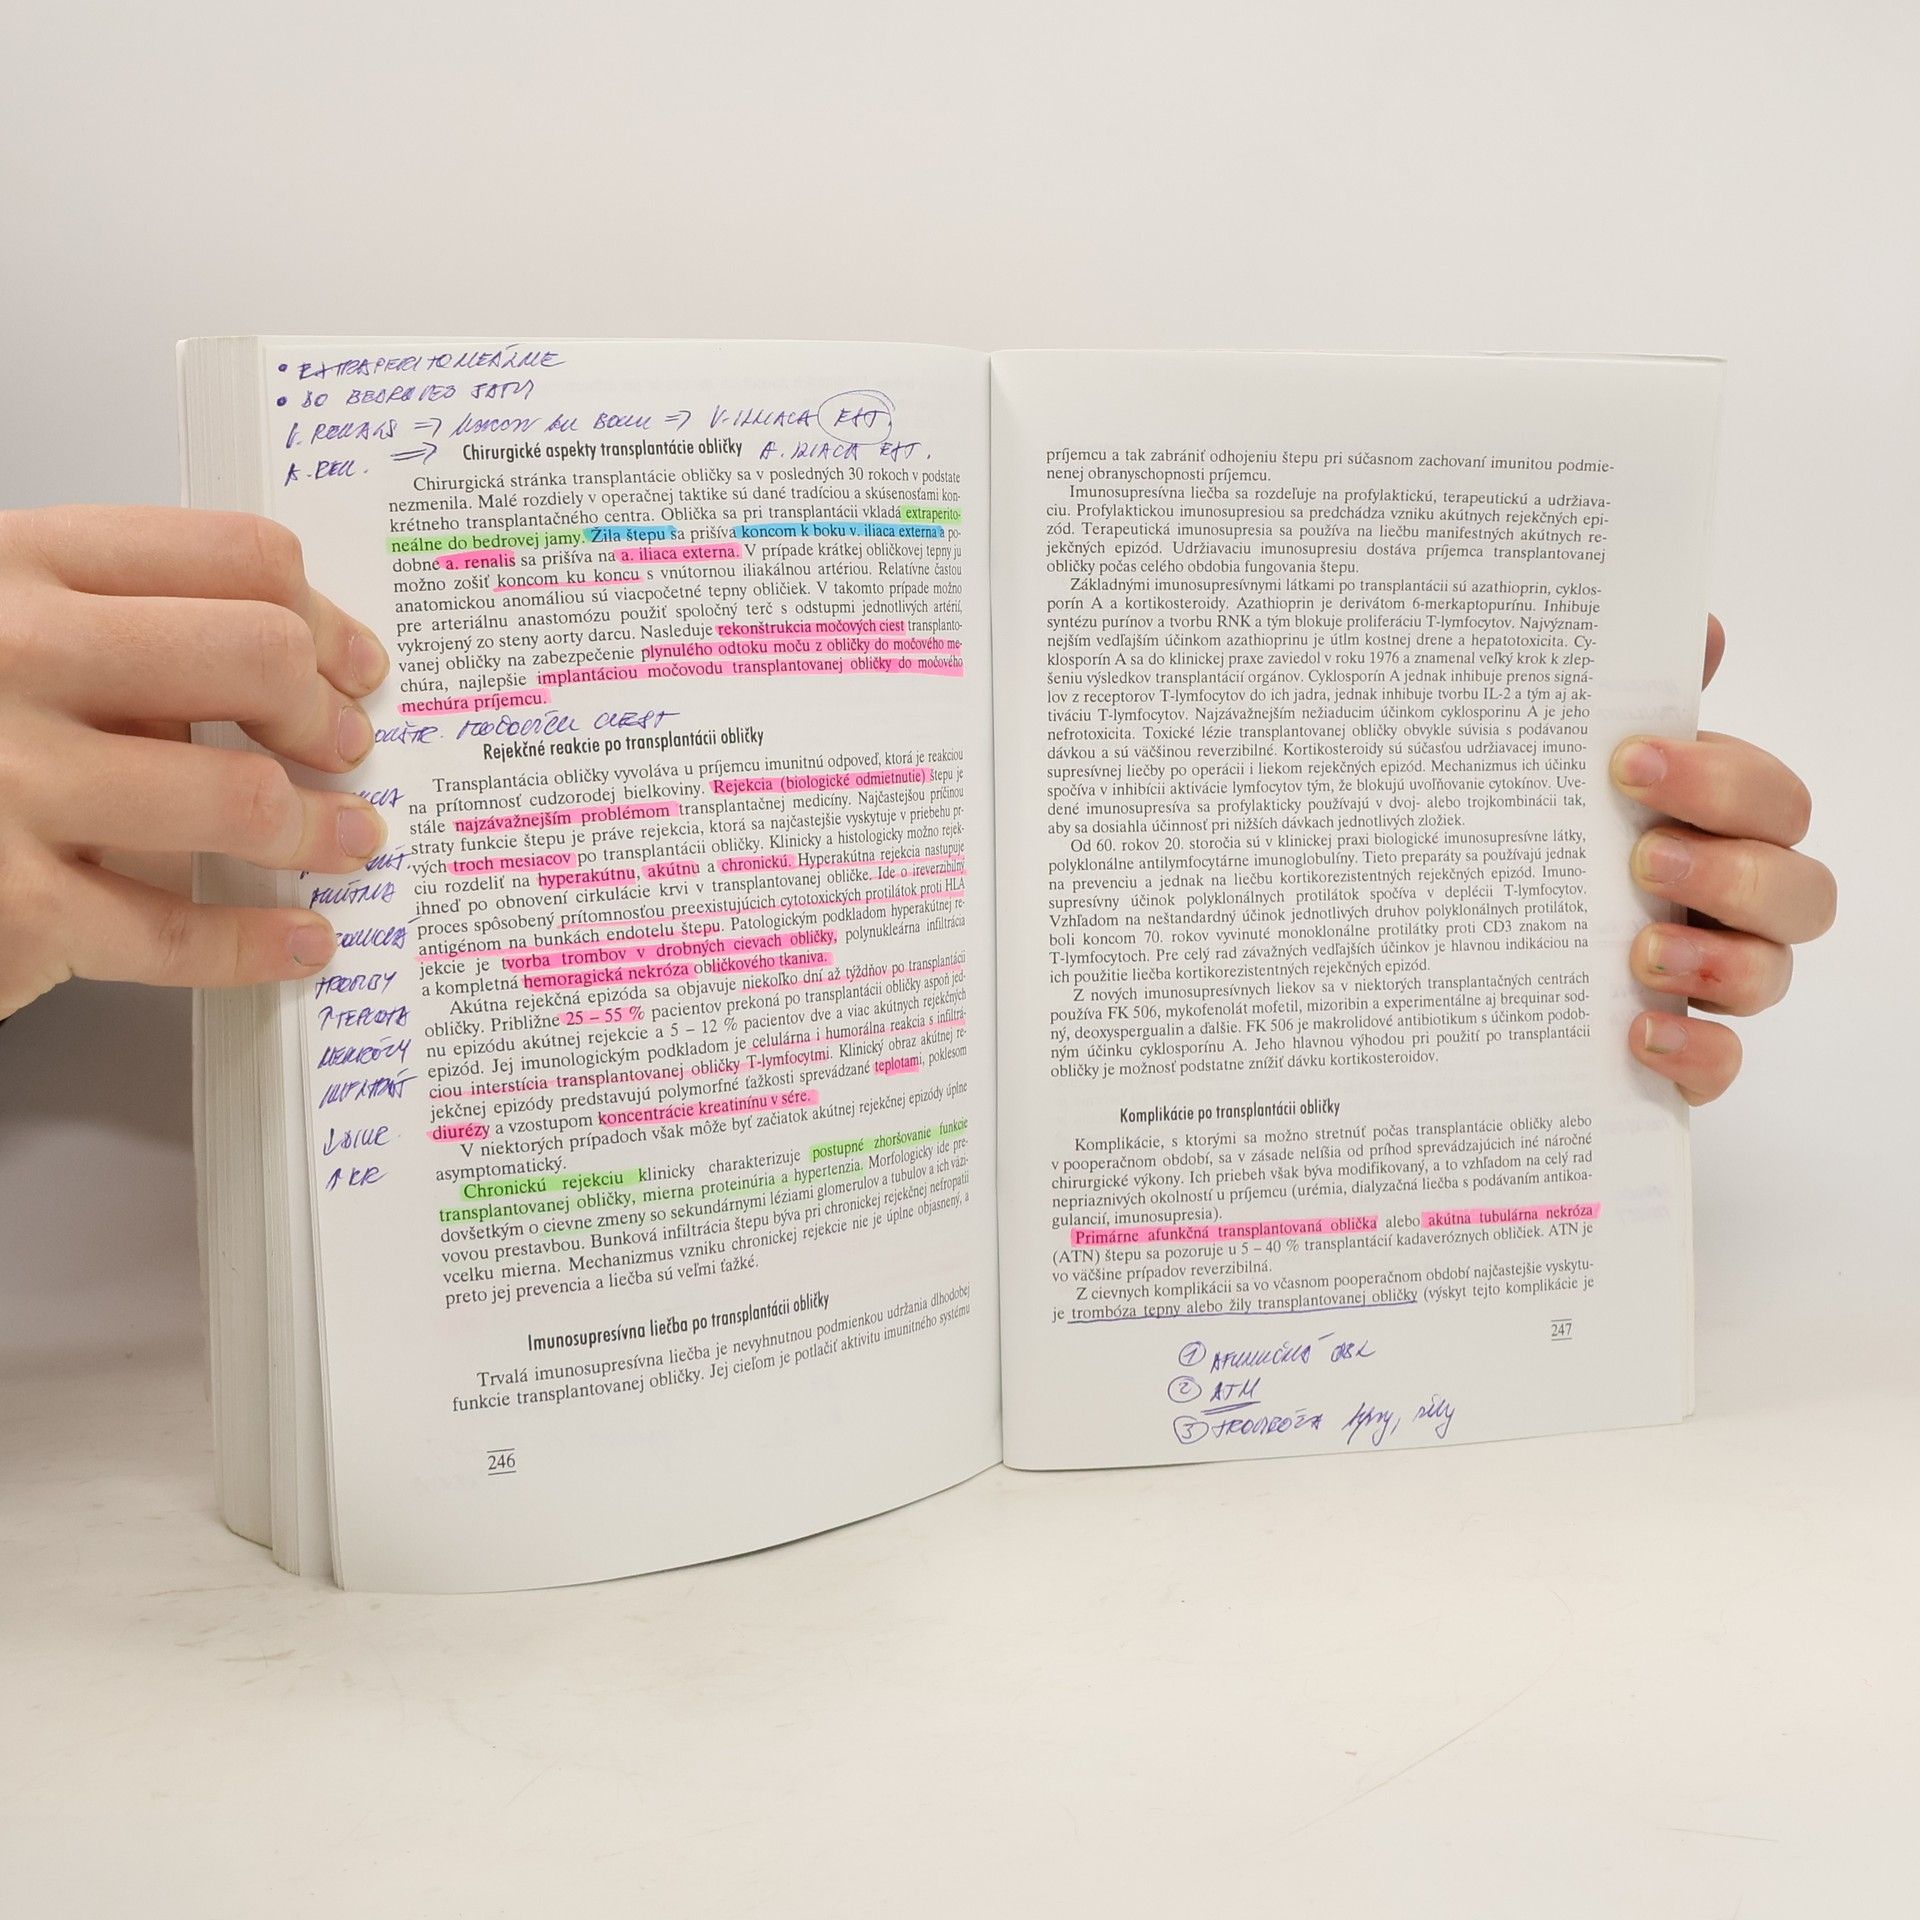 • EXTRAPERITONEÁLNE
• DO BEDROVEJ JAMY
V. RENALIS => KONCOM KU BOKU => V. ILIACA EXT.
A. REN. => A. ILIACA EXT.
Chirurgické aspekty transplantácie obličky
Chirurgická stránka transplantácie obličky sa v posledných 30 rokoch v podstate
nezmenila. Malé rozdiely v operačnej taktike sú dané tradíciou a skúsenosťami kon-
krétneho transplantačného centra. Oblička sa pri transplantácii vkladá extraperito-
neálne do bedrovej jamy. Žila štepu sa prišíva koncom k boku v. iliaca externa a po-
dobne a. renalis sa prišíva na a. iliaca externa. V prípade krátkej obličkovej tepny ju
možno zošiť koncom ku koncu s vnútornou iliakálnou artériou. Relatívne častou
anatomickou anomáliou sú viacpočetné tepny obličiek. V takomto prípade možno
pre arteriálnu anastomózu použiť spoločný terč s odstupmi jednotlivých artérií,
vykrojený zo steny aorty darcu. Nasleduje rekonštrukcia močových ciest transplanto-
vanej obličky na zabezpečenie plynulého odtoku moču z obličky do močového me-
chúra, najlepšie implantáciou močovodu transplantovanej obličky do močového
mechúra príjemcu.
MOČOVÝCH CIEST
Rejekčné reakcie po transplantácii obličky
Transplantácia obličky vyvoláva u príjemcu imunitnú odpoveď, ktorá je reakciou
na prítomnosť cudzorodej bielkoviny. Rejekcia (biologické odmietnutie) štepu je
stále najzávažnejším problémom transplantačnej medicíny. Najčastejšou príčinou
straty funkcie štepu je práve rejekcia, ktorá sa najčastejšie vyskytuje v priebehu pr-
vých troch mesiacov po transplantácii obličky. Klinicky a histologicky možno rejek-
ciu rozdeliť na hyperakútnu, akútnu a chronickú. Hyperakútna rejekcia nastupuje
ihneď po obnovení cirkulácie krvi v transplantovanej obličke. Ide o ireverzibilný
proces spôsobený prítomnosťou preexistujúcich cytotoxických protilátok proti HLA
antigénom na bunkách endotelu štepu. Patologickým podkladom hyperakútnej re-
jekcie je tvorba trombov v drobných cievach obličky, polynukleárna infiltrácia
a kompletná hemoragická nekróza obličkového tkaniva.
Akútna rejekčná epizóda sa objavuje niekoľko dní až týždňov po transplantácii
obličky. Približne 25 – 55 % pacientov prekoná po transplantácii obličky aspoň jed-
nu epizódu akútnej rejekcie a 5 – 12 % pacientov dve a viac akútnych rejekčných
epizód. Jej imunologickým podkladom je celulárna i humorálna reakcia s infiltrá-
ciou interstícia transplantovanej obličky T-lymfocytmi. Klinický obraz akútnej re-
jekčnej epizódy predstavujú polymorfné ťažkosti sprevádzané teplotami, poklesom
diurézy a vzostupom koncentrácie kreatinínu v sére.
V niektorých prípadoch však môže byť začiatok akútnej rejekčnej epizódy úplne
asymptomatický.
Chronickú rejekciu klinicky charakterizuje postupné zhoršovanie funkcie
transplantovanej obličky, mierna proteinúria a hypertenzia. Morfologicky ide pre-
dovšetkým o cievne zmeny so sekundárnymi léziami glomerulov a tubulov a ich väzi-
vovou prestavbou. Bunková infiltrácia štepu býva pri chronickej rejekčnej nefropatii
vcelku mierna. Mechanizmus vzniku chronickej rejekcie nie je úplne objasnený, a
preto jej prevencia a liečba sú veľmi ťažké.
AKÚTNA
TROMBY
↑TEPLOTA
NEKRÓZY
INFILTRÁT
↓DIUR.
↑KR
Imunosupresívna liečba po transplantácii obličky
Trvalá imunosupresívna liečba je nevyhnutnou podmienkou udržania dlhodobej
funkcie transplantovanej obličky. Jej cieľom je potlačiť aktivitu imunitného systému
246
príjemcu a tak zabrániť odhojeniu štepu pri súčasnom zachovaní imunitou podmie-
nenej obranyschopnosti príjemcu.
Imunosupresívna liečba sa rozdeľuje na profylaktickú, terapeutickú a udržiava-
ciu. Profylaktickou imunosupresiou sa predchádza vzniku akútnych rejekčných epi-
zód. Terapeutická imunosupresia sa používa na liečbu manifestných akútnych re-
jekčných epizód. Udržiavaciu imunosupresiu dostáva príjemca transplantovanej
obličky počas celého obdobia fungovania štepu.
Základnými imunosupresívnymi látkami po transplantácii sú azathioprin, cyklos-
porín A a kortikosteroidy. Azathioprin je derivátom 6-merkaptopurínu. Inhibuje
syntézu purínov a tvorbu RNK a tým blokuje proliferáciu T-lymfocytov. Najvýznam-
nejším vedľajším účinkom azathioprinu je útlm kostnej drene a hepatotoxicita. Cy-
klosporín A sa do klinickej praxe zaviedol v roku 1976 a znamenal veľký krok k zlep-
šeniu výsledkov transplantácií orgánov. Cyklosporín A jednak inhibuje prenos signá-
lov z receptorov T-lymfocytov do ich jadra, jednak inhibuje tvorbu IL-2 a tým aj ak-
tiváciu T-lymfocytov. Najzávažnejším nežiaducim účinkom cyklosporinu A je jeho
nefrotoxicita. Toxické lézie transplantovanej obličky obvykle súvisia s podávanou
dávkou a sú väčšinou reverzibilné. Kortikosteroidy sú súčasťou udržiavacej imuno-
supresívnej liečby po operácii i liekom rejekčných epizód. Mechanizmus ich účinku
spočíva v inhibícii aktivácie lymfocytov tým, že blokujú uvoľňovanie cytokínov. Uve-
dené imunosupresíva sa profylakticky používajú v dvoj- alebo trojkombinácii tak,
aby sa dosiahla účinnosť pri nižších dávkach jednotlivých zložiek.
Od 60. rokov 20. storočia sú v klinickej praxi biologické imunosupresívne látky,
polyklonálne antilymfocytárne imunoglobulíny. Tieto preparáty sa používajú jednak
na prevenciu a jednak na liečbu kortikorezistentných rejekčných epizód. Imuno-
supresívny účinok polyklonálnych protilátok spočíva v deplécii T-lymfocytov.
Vzhľadom na neštandardný účinok jednotlivých druhov polyklonálnych protilátok,
boli koncom 70. rokov vyvinuté monoklonálne protilátky proti CD3 znakom na
T-lymfocytoch. Pre celý rad závažných vedľajších účinkov je hlavnou indikáciou na
ich použitie liečba kortikorezistentných rejekčných epizód.
Z nových imunosupresívnych liekov sa v niektorých transplantačných centrách
používa FK 506, mykofenolát mofetil, mizoribin a experimentálne aj brequinar sod-
ný, deoxyspergualin a ďalšie. FK 506 je makrolidové antibiotikum s účinkom podob-
ným účinku cyklosporínu A. Jeho hlavnou výhodou pri použití po transplantácii
obličky je možnosť podstatne znížiť dávku kortikosteroidov.
Komplikácie po transplantácii obličky
Komplikácie, s ktorými sa možno stretnúť počas transplantácie obličky alebo
v pooperačnom období, sa v zásade nelíšia od príhod sprevádzajúcich iné náročné
chirurgické výkony. Ich priebeh však býva modifikovaný, a to vzhľadom na celý rad
nepriaznivých okolností u príjemcu (urémia, dialyzačná liečba s podávaním antikoa-
gulancií, imunosupresia).
Primárne afunkčná transplantovaná oblička alebo akútna tubulárna nekróza
(ATN) štepu sa pozoruje u 5 – 40 % transplantácií kadaveróznych obličiek. ATN je
vo väčšine prípadov reverzibilná.
Z cievnych komplikácií sa vo včasnom pooperačnom období najčastejšie vyskytu-
je trombóza tepny alebo žily transplantovanej obličky (výskyt tejto komplikácie je
247
① AFUNKČNÁ OBL
② ATN
③ TROMBÓZA tepny, žily